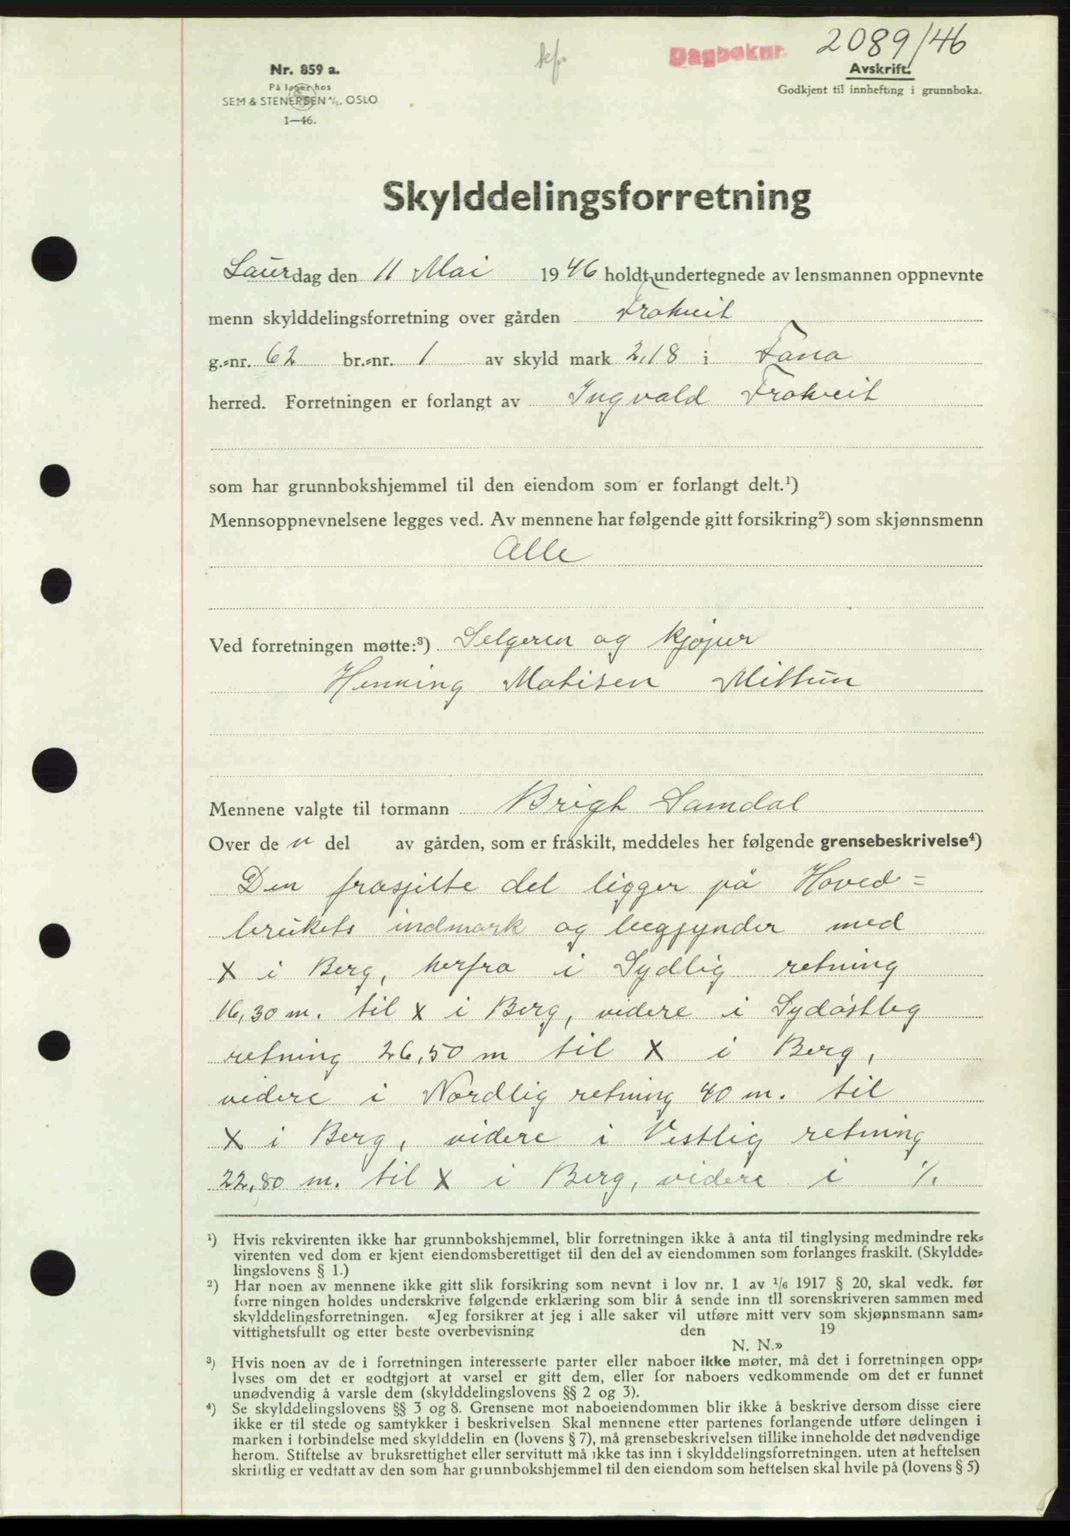 kfr.
Dagboknr. 2089/46
Nr. 859 a.
På lager hos
SEM & STENERSEN A/S, OSLO
1—46.
Avskrift.
Godkjent til innhefting i grunnboka.
Skylddelingsforretning
Laurdag den 11 Mai 1946 holdt undertegnede av lensmannen oppnevnte
menn skylddelingsforretning over gården Trokneit
g.-nr. 62 br.-nr. 1 av skyld mark 2,18 i Fana
herred. Forretningen er forlangt av Ingvald
som har grunnbokshjemmel til den eiendom som er forlangt delt.¹)
Mennsoppnevnelsene legges ved. Av mennene har følgende gitt forsikring²) som skjønnsmenn
Alle
Ved forretningen møtte:³) Selgeren og kjøper
Henning Matisen Mittun
Mennene valgte til formann Brigt Samdal
Over de n del av gården, som er fraskilt, meddeles her følgende grensebeskrivelse⁴)
Den frasjilte del ligger på Hoved=
brukets indmark og begjynder med
X i Berg, herfra i Sydlig retning
16,30 m. til X i Berg, videre i Sydøstleg
retning 26,50 m til X i Berg,
videre i Nordlig retning 40 m. til
X i Berg, videre i Vestlig retning
22,80 m. til X i Berg, videre i ./.
¹) Hvis rekvirenten ikke har grunnbokshjemmel, blir forretningen ikke å anta til tinglysing medmindre rek-
virenten ved dom er kjent eiendomsberettiget til den del av eiendommen som forlanges fraskilt. (Skyldde-
lingslovens § 1.)
²) Har noen av mennene ikke gitt slik forsikring som nevnt i lov nr. 1 av 1/6 1917 § 20, skal vedk. før
forretningen holdes underskrive følgende erklæring som blir å sende inn til sorenskriveren sammen med
skylddelingsforretningen. «Jeg forsikrer at jeg i alle saker vil utføre mitt verv som skjønnsmann sam-
vittighetsfullt og etter beste overbevisning den 19
N. N.»
³) Hvis noen av de i forretningen interesserte parter eller naboer ikke møter, må det i forretningen opp-
lyses om det er godtgjort at varsel er gitt dem, eller for naboers vedkommende om det er funnet
unødvendig å varsle dem (skylddelingslovens §§ 2 og 3).
⁴) Se skylddelingslovens §§ 3 og 8. Grensene mot naboeiendommen blir ikke å beskrive dersom disse eiere
ikke er til stede og samtykker i beskrivelsen. Skal mennene etter partenes forlangende utføre delingen i
marken i forbindelse med skylddelin en (lovens § 7), må grensebeskrivelsen tillike inneholde det nødvendige
herom. Stiftelse av bruksrettighet eller servitutt må ikke tas inn i skylddelingsforretningen, uten at heftelsen
skriftlig er vedtatt av den som har grunnbokshjemmel til den eiendom som heftelsen skal hvile på (lovens § 5)